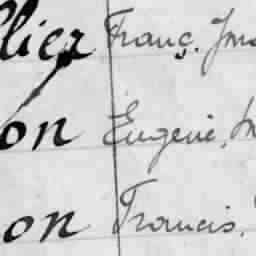 llier Franç. Jm
on Eugenie, M
on Francis,